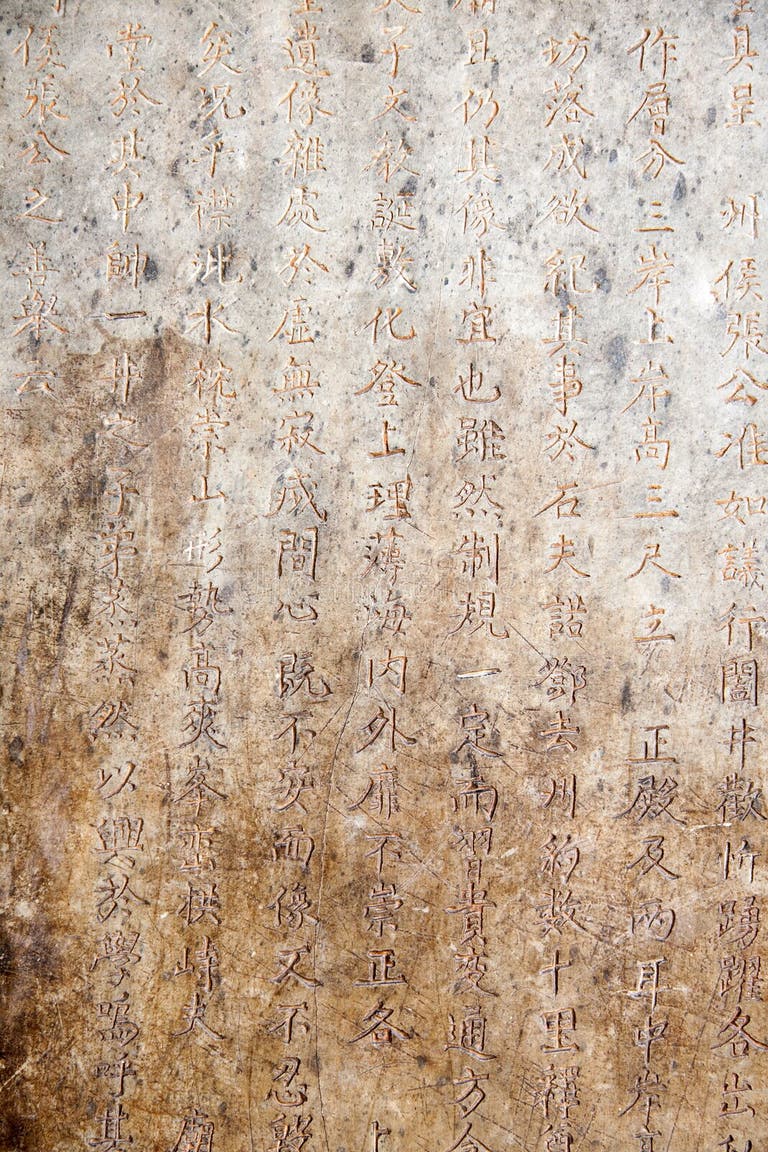 具呈 州侯張公准如議行闔井歡忻踴躍各出私
作層分三岸上岸高三尺立 正殿及兩耳中岸高
坊落成欲紀其事於石夫諾鄧去州約數十里釋
廟且仍其像非宜也雖然制規一定而習貴變通方今
天子文教誕敷化登上理薄海內外靡不崇正各 上
遺像雜處於虛無寂滅間心既不安而像又不忍毀
矣況乎襟泚水枕崇山形勢高爽峯巒拱峙夫 廟
堂於其中帥一井之子弟烝烝然以興於學嗚呼其
侯張公之善舉云